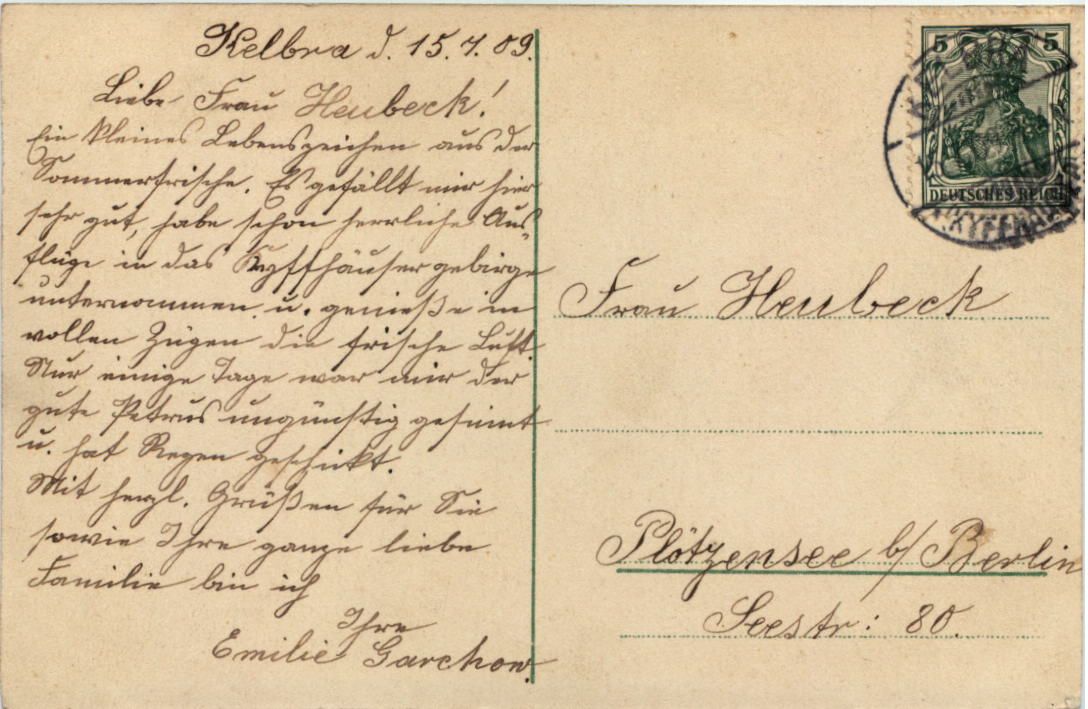 Kelbra d. 15.7.09.
Liebe Frau Heubeck!
Ein kleines Lebenszeichen aus der
Sommerfrische. Es gefällt mir hier
sehr gut, habe schon herrliche Aus-
flüge in das Kyffhäusergebirge
unternommen u. genieße in
vollen Zügen die frische Luft.
Nur einige Tage war mir der
gute Petrus ungünstig gesinnt
u. hat Regen geschickt.
Mit herzl. Grüßen für Sie
sowie Ihre ganze liebe
Familie bin ich
Ihre
Emilie Garchow.
5 5
DEUTSCHES REICH
Frau Heubeck
Plötzensee b/Berlin
Seestr: 80.